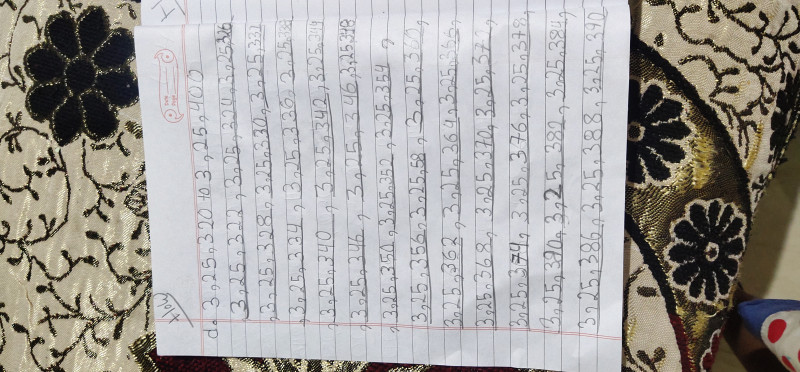 d. 3,25,320 to 3,25,400
3,25,322, 3,25,324, 3,25,326
, 3,25,328, 3,25,330, 3,25,332
, 3,25,334, 3,25,336, 3,25,338
, 3,25,340, 3,25,342, 3,25,344
, 3,25,346, 3,25,346, 3,25,348
, 3,25,350, 3,25,352, 3,25,354,
3,25,356, 3,25,58, 3,25,360,
3,25,362, 3,25,364, 3,25,366,
3,25,368, 3,25,370, 3,25,372,
3,25,374, 3,25,376, 3,25,378,
3,25,380, 3,25,382, 3,25,384,
3,25,386, 3,25,388, 3,25,390